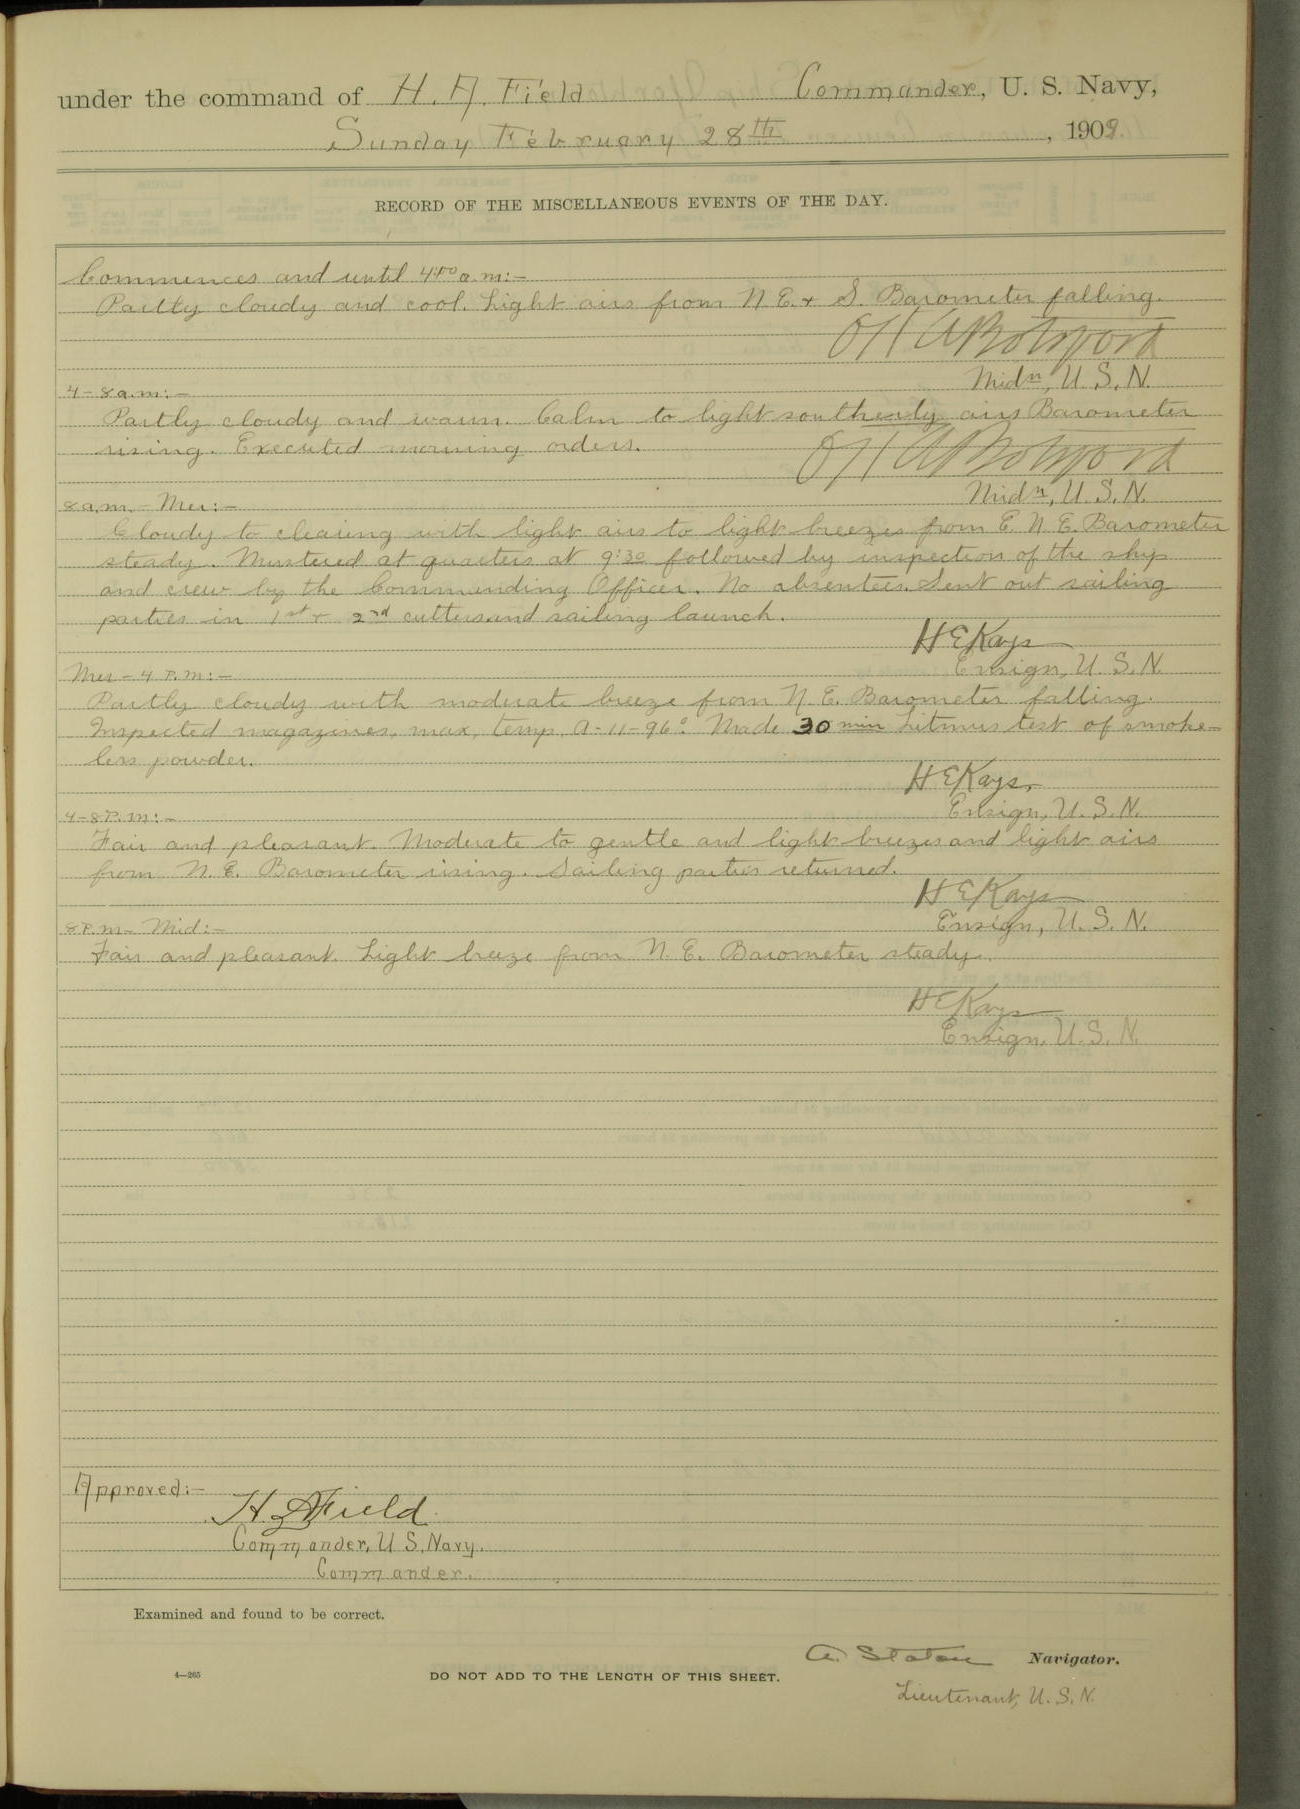 under the command of H. A. Field Commander, U. S. Navy,
Sunday February 28th, 1909.
RECORD OF THE MISCELLANEOUS EVENTS OF THE DAY.
Commences and until 4:00 a.m:-
Partly cloudy and cool. Light airs from N E. + S. Barometer falling.
Midn, U. S. N.
4-8 a.m:-
Partly cloudy and warm. Calm to light southerly airs Barometer
rising. Executed morning orders.
Midn, U. S. N.
8 a.m. - Mer:-
Cloudy to clearing with light airs to light breezes from E. N. E. Barometer
steady. Mustered at quarters at 9:30 followed by inspection of the ship
and crew by the Commanding Officer. No absentees. Sent out sailing
parties in 1st + 2nd cutters and sailing launch.
H E Kays
Ensign, U. S. N.
Mer - 4 P.M:-
Partly cloudy with moderate breeze from N. E. Barometer falling.
Inspected magazines, max. temp. A-11-96°. Made 30 min Litmus test of smoke-
less powder.
H E Kays,
Ensign, U. S. N.
4-8 P.M:-
Fair and pleasant. Moderate to gentle and light breezes and light airs
from N. E. Barometer rising. Sailing parties returned.
H E Kays
Ensign, U. S. N.
8 P.M - Mid:-
Fair and pleasant. Light breeze from N. E. Barometer steady.
H E Kays
Ensign, U. S. N.
Approved:-
H. A. Field
Commander, U. S. Navy.
Commander.
Examined and found to be correct.
A. Staton Navigator.
4—265 DO NOT ADD TO THE LENGTH OF THIS SHEET.
Lieutenant, U. S. N.